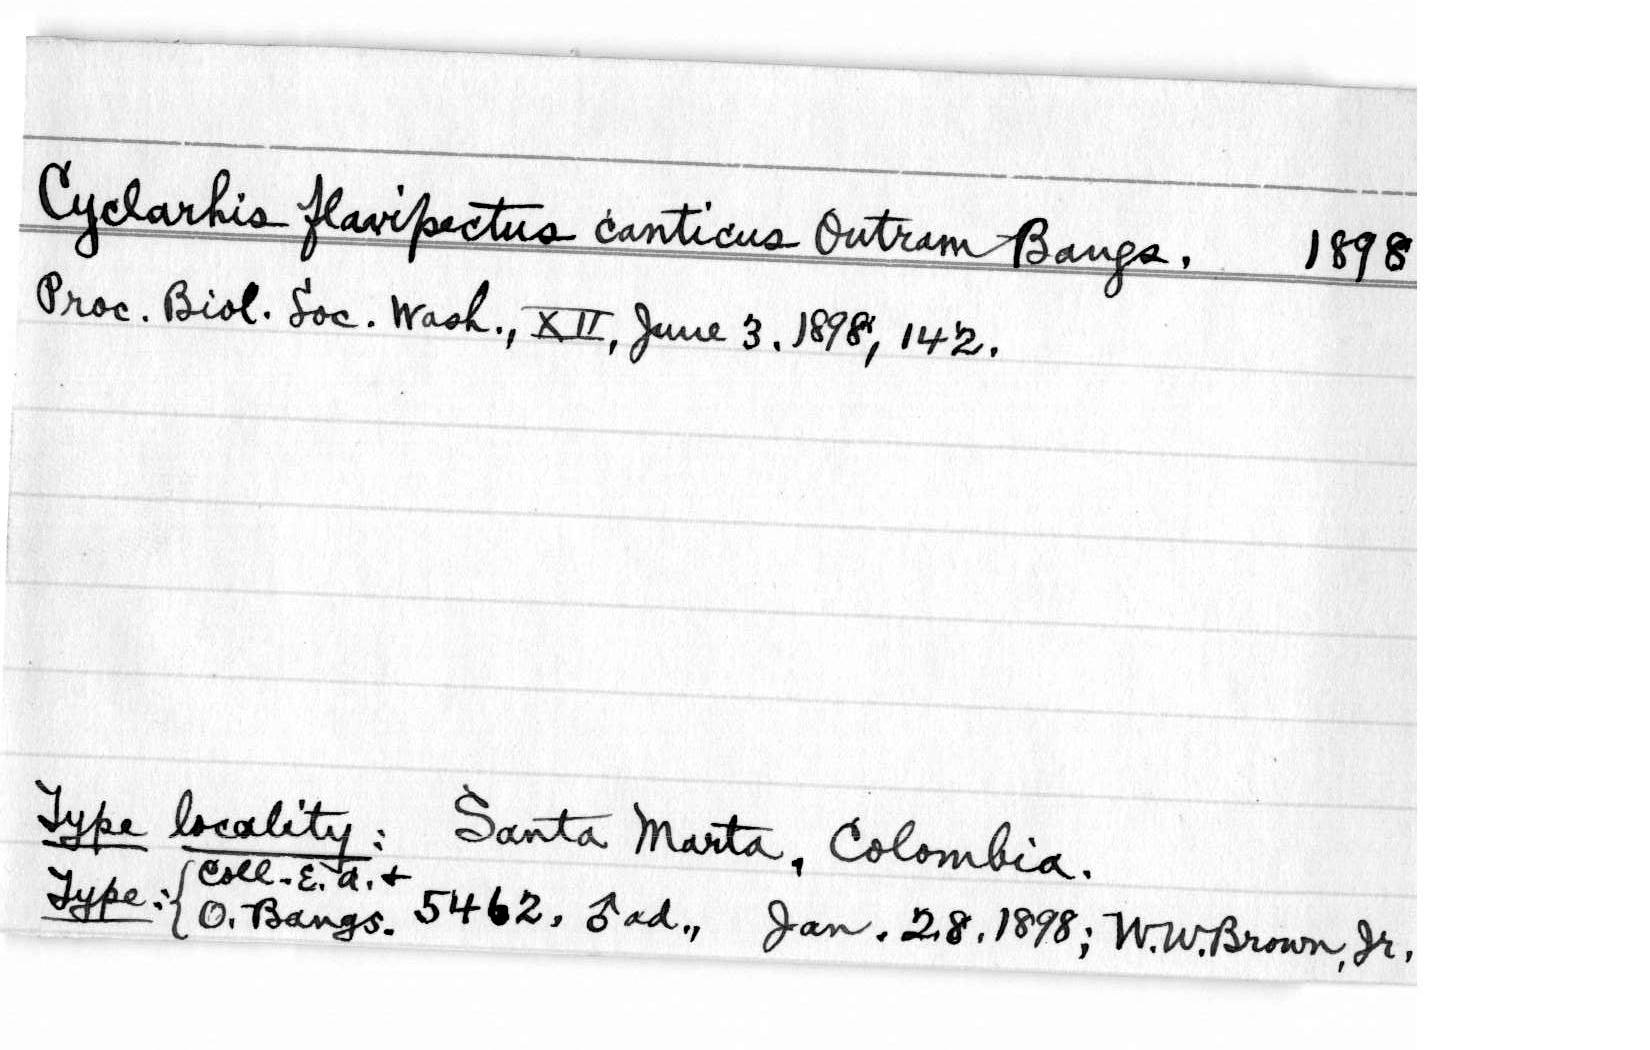 Cyclarhis flavipectus canticus Outram Bangs. 1898
Proc. Biol. Soc. Wash., XII, June 3. 1898, 142.
Type locality: Santa Marta, Colombia.
Type: { Coll. E. A. +
O. Bangs. 5462, ♂ ad., Jan. 28. 1898; W. W. Brown, Jr.